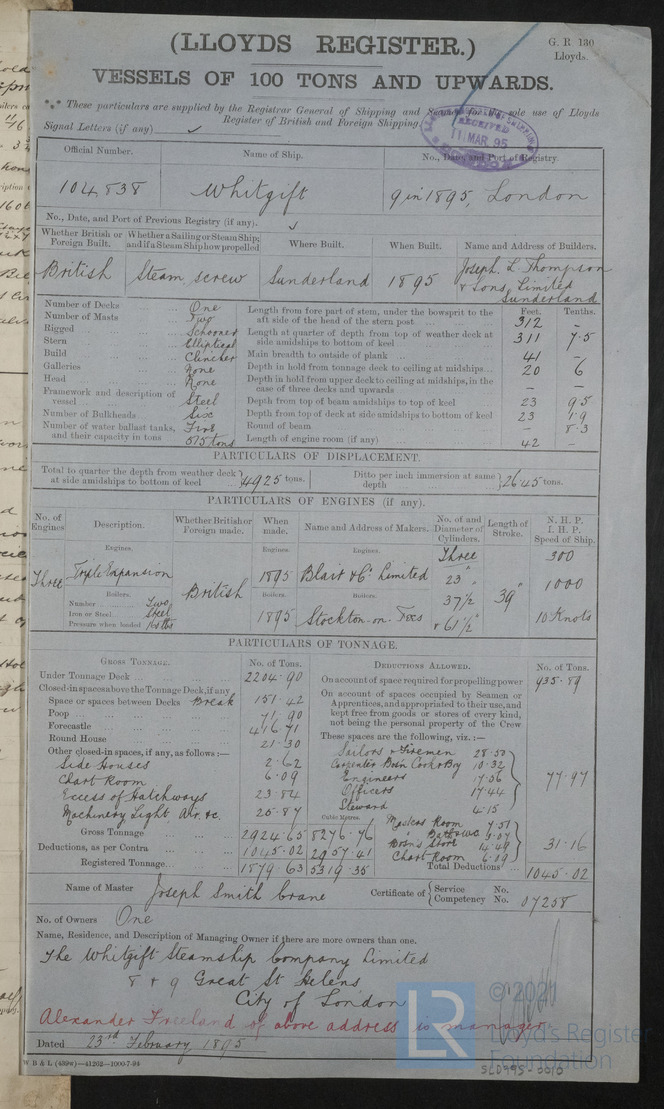 (LLOYDS REGISTER.)
G. R. 130
Lloyds.
VESSELS OF 100 TONS AND UPWARDS.
*** These particulars are supplied by the Registrar General of Shipping and Seamen for the sole use of Lloyds
Register of British and Foreign Shipping.
Signal Letters (if any) ✓
RECEIVED
11 MAR 95
Official Number. Name of Ship. No., Date, and Port of Registry.
104,838 Whitgift 9 in 1895, London
No., Date, and Port of Previous Registry (if any). ✓
Whether British or Foreign Built. Whether a Sailing or Steam Ship; and if a Steam Ship how propelled Where Built. When Built. Name and Address of Builders.
British Steam, screw Sunderland 1895 Joseph L. Thompson
& Sons, Limited
Sunderland
Feet. Tenths.
Number of Decks One
Number of Masts Two
Rigged Schooner
Stern Elliptical
Build Clincher
Galleries None
Head None
Framework and description of vessel Steel
Number of Bulkheads Six
Number of water ballast tanks, and their capacity in tons Five 575 tons
Length from fore part of stem, under the bowsprit to the aft side of the head of the stern post 312 –
Length at quarter of depth from top of weather deck at side amidships to bottom of keel 311 7.5
Main breadth to outside of plank 41 –
Depth in hold from tonnage deck to ceiling at midships 20 6
Depth in hold from upper deck to ceiling at midships, in the case of three decks and upwards – –
Depth from top of beam amidships to top of keel 23 95
Depth from top of deck at side amidships to bottom of keel 23 1.9
Round of beam – 8.3
Length of engine room (if any) 42 –
PARTICULARS OF DISPLACEMENT.
Total to quarter the depth from weather deck at side amidships to bottom of keel 4925 tons.
Ditto per inch immersion at same depth 26.45 tons.
PARTICULARS OF ENGINES (if any).
No. of Engines Description. Whether British or Foreign made. When made. Name and Address of Makers. No. of and Diameter of Cylinders. Length of Stroke. N. H. P. I. H. P. Speed of Ship.
Engines. Engines. Engines. Three 300
Three Triple Expansion British 1895 Blair & Co. Limited 23" 39" 1000
Boilers. Boilers. Boilers. 37½
Number Two
Iron or Steel Steel 1895 Stockton-on-Tees & 61½" 10 Knots
Pressure when loaded
PARTICULARS OF TONNAGE.
GROSS TONNAGE. No. of Tons.
Under Tonnage Deck 2204.90
Closed-in spaces above the Tonnage Deck, if any
Space or spaces between Decks Break 151.42
Poop 71.90
Forecastle 416.71
Round House 21.30
Other closed-in spaces, if any, as follows:—
Side Houses 2.62
Chart Room 6.09
Excess of Hatchways 23.84
Machinery, Light, Air, &c. 25.87
Cubic Metres.
Gross Tonnage 2924.65 8276.76
Deductions, as per Contra 1045.02 2957.41
Registered Tonnage 1879.63 5319.35
DEDUCTIONS ALLOWED. No. of Tons.
On account of space required for propelling power 935.89
On account of spaces occupied by Seamen or Apprentices, and appropriated to their use, and kept free from goods or stores of every kind, not being the personal property of the Crew
These spaces are the following, viz. :—
Sailors & Firemen 28.50
Carpenter Bosn Cook & Boy 10.32
Engineers 17.56
Officers 17.44
Steward 4.15
77.97
Masters Room 7.57
" Bath & WC 3.07
Bosn's Store 14.49
Chart Room 6.09
31.16
Total Deductions 1045.02
Name of Master Joseph Smith Crane Certificate of Service No.
Competency No. 07258
No. of Owners One
Name, Residence, and Description of Managing Owner if there are more owners than one.
The Whitgift Steamship Company Limited
8 & 9 Great St Helens
City of London
Alexander Freeland of above address is manager
Dated 23rd February 1895
W B & L (439w)—41262—1000-7-94
LR
© 2021
Lloyd's Register
Foundation
SLD995-0010